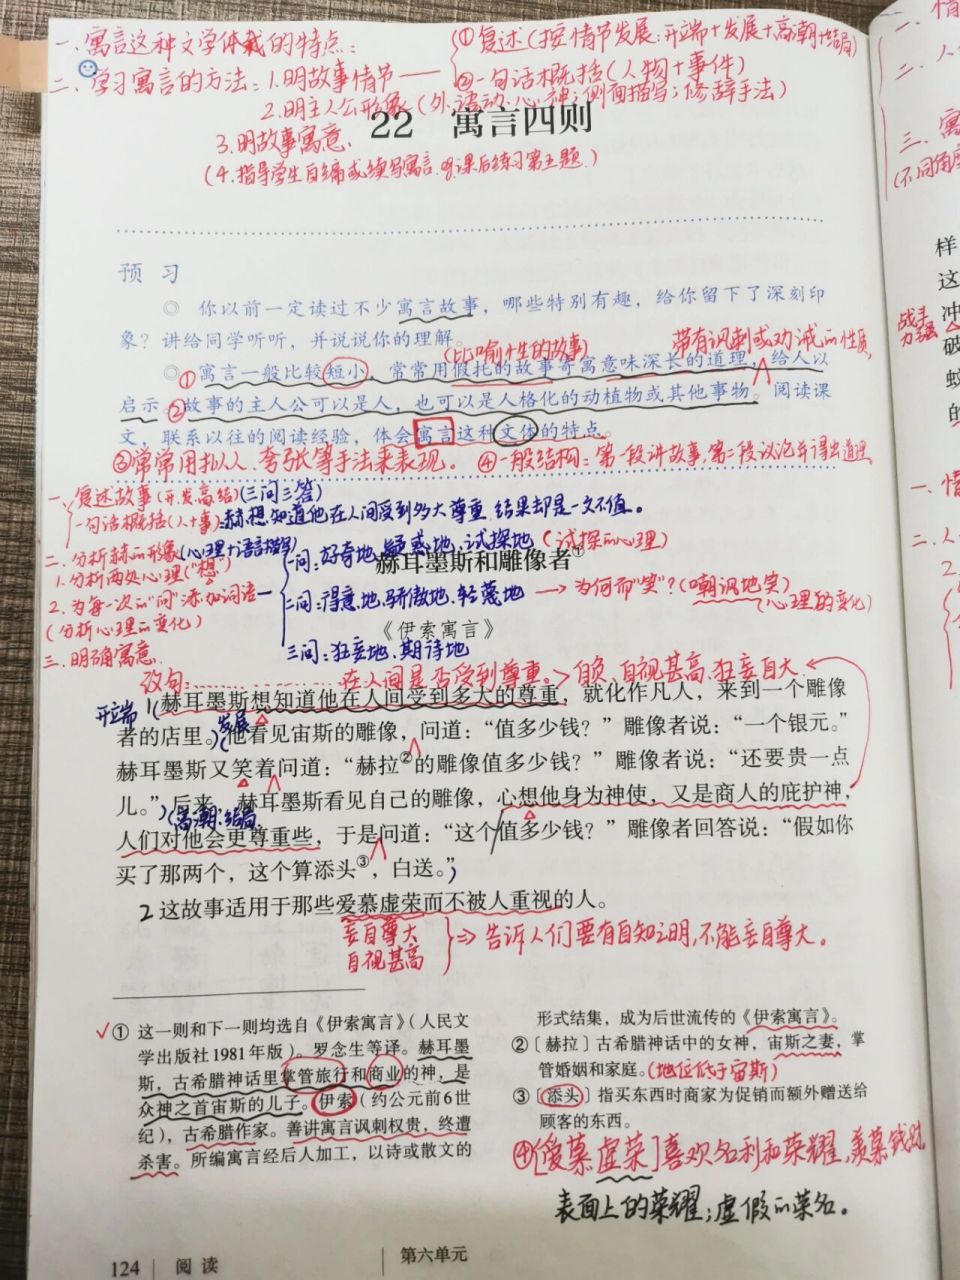 一、寓言这种文学体裁的特点：
二、学习寓言的方法：1.明故事情节——
①复述（按情节发展：开端+发展+高潮+结局）
②一句话概括（人物+事件）
2.明主人公形象（外、语、动、心、神；侧面描写；修辞手法）
3.明故事寓意、
（4.指导学生自编或续写寓言。课后练习第五题。）
22 寓言四则
预 习
◎ 你以前一定读过不少寓言故事，哪些特别有趣，给你留下了深刻印
象？讲给同学听听，并说说你的理解。
（比喻性的故事）
带有讽刺或劝诫的性质
◎①寓言一般比较短小，常常用假托的故事寄寓意味深长的道理，给人以
启示。②故事的主人公可以是人，也可以是人格化的动植物或其他事物。阅读课
文，联系以往的阅读经验，体会寓言这种文体的特点。
③常常用拟人、夸张等手法来表现。④一般结构：第一段讲故事，第二段议论并得出道理。
一、复述故事（开、发、高、结）（三问三答）
一句话概括（人+事）：赫想知道他在人间受到多大尊重，结果却是一文不值。
二、分析赫的形象（心理+语言描写）
1.分析两处心理（“想”）
2.为每一次的“问”添加词语—
（分析心理的变化）
三、明确寓意
一问：好奇地、疑惑地、试探地（试探的心理）
赫耳墨斯和雕像者①
二问：得意地、骄傲地、轻蔑地 → 为何而“笑”？（嘲讽地笑）
（心理的变化）
《伊索寓言》
三问：狂妄地、期待地
改句：……在人间是否受到尊重。> 自负、自视甚高、狂妄自大
开端
1（赫耳墨斯想知道他在人间受到多大的尊重，就化作凡人，来到一个雕像
发展
者的店里。）（他看见宙斯的雕像，问道：“值多少钱？”雕像者说：“一个银元。”
赫耳墨斯又笑着问道：“赫拉②的雕像值多少钱？”雕像者说：“还要贵一点
儿。”后来，赫耳墨斯看见自己的雕像，心想他身为神使，又是商人的庇护神，
（高潮、结局
人们对他会更尊重些，于是问道：“这个值多少钱？”雕像者回答说：“假如你
买了那两个，这个算添头③，白送。”）
2 这故事适用于那些爱慕虚荣而不被人重视的人。
妄自尊大
自视甚高
⇒ 告诉人们要有自知之明，不能妄自尊大。
① 这一则和下一则均选自《伊索寓言》（人民文
学出版社1981年版）。罗念生等译。赫耳墨
斯，古希腊神话里掌管旅行和商业的神，是
众神之首宙斯的儿子。伊索（约公元前6世
纪），古希腊作家。善讲寓言讽刺权贵，终遭
杀害。所编寓言经后人加工，以诗或散文的
形式结集，成为后世流传的《伊索寓言》。
②〔赫拉〕古希腊神话中的女神，宙斯之妻，掌
管婚姻和家庭。（地位低于宙斯）
③〔添头〕指买东西时商家为促销而额外赠送给
顾客的东西。
④[爱慕虚荣]喜欢名利和荣耀，羡慕钱财
表面上的荣耀；虚假的荣名。
124 阅 读 第六单元
样
这
冲
破
蚊
的
战斗